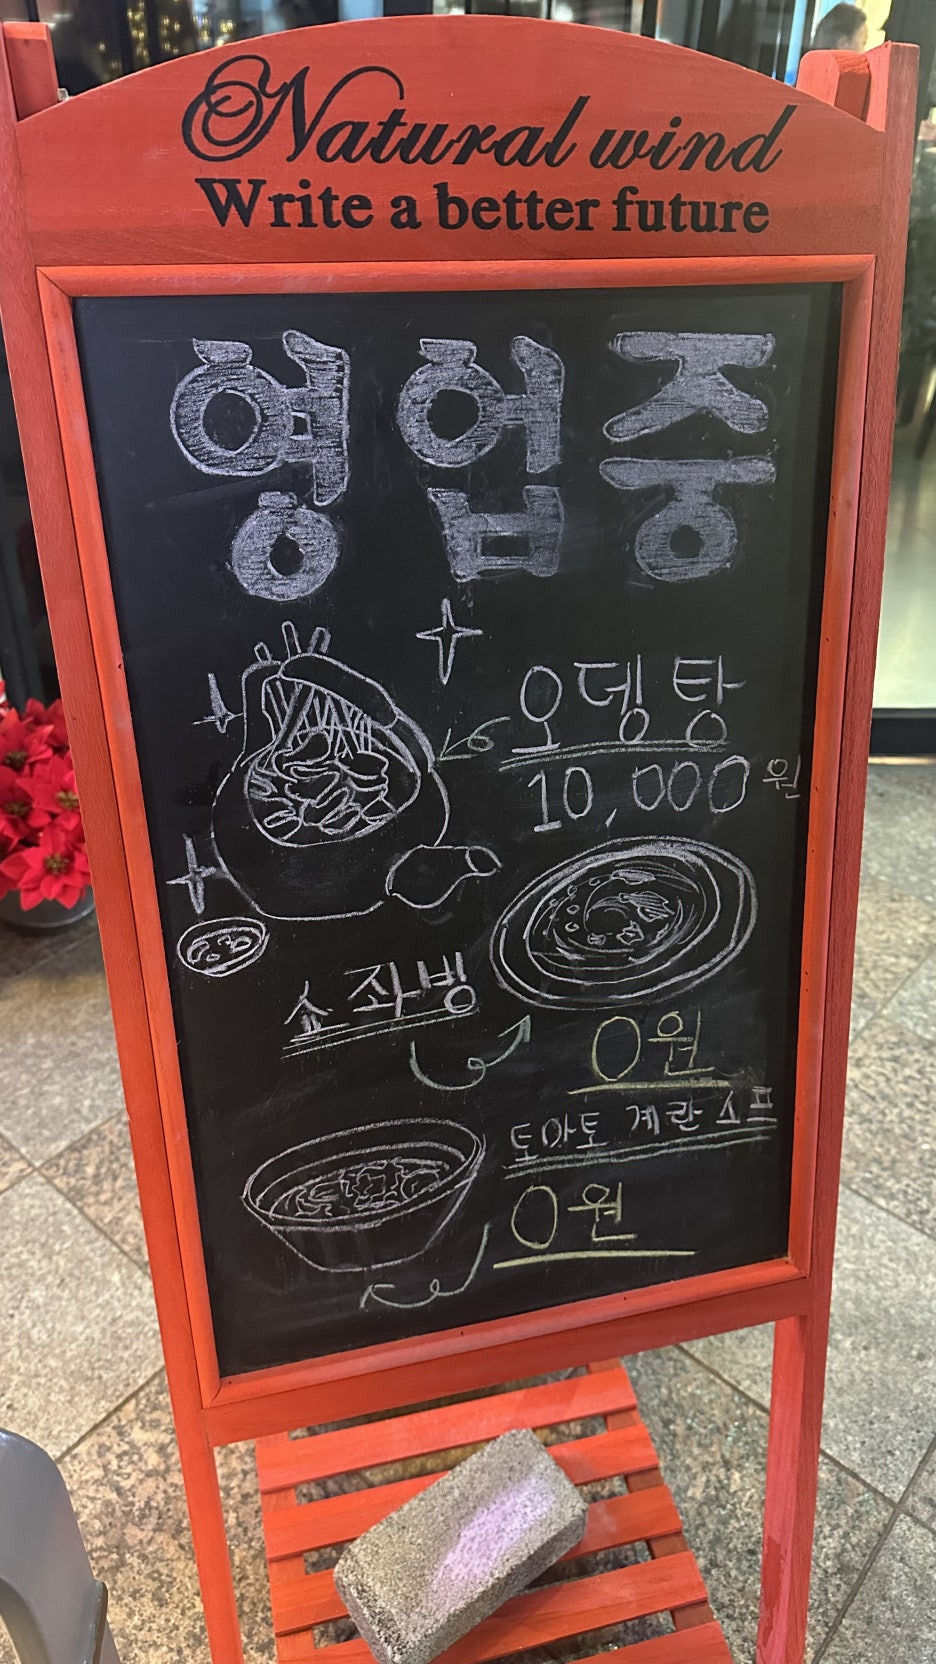 Natural wind
Write a better future
영업중
오뎅탕
10,000원
소좌빙
0원
토마토 계란 소프
0원